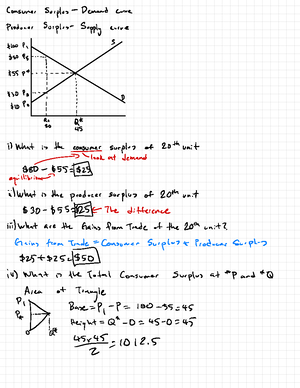 Consumer Surplus - Demand curve
Producer Surplus - Supply curve
$100 P₁
S
$80 P₂
$55 P*
$30 P₃
$10 P₀
D
Q₂
20
Q*
45
i) What is the consumer surplus of 20th unit
look at demand
$80 - $55 = $25
equilibrium
ii) What is the producer surplus of 20th unit
$30 - $55 = $25 ← The difference
iii) What are the Gains from Trade of the 20th unit?
Gains from Trade = Consumer Surplus + Producer Surplus
$25 + $25 = $50
iv) What is the Total Consumer Surplus at *P and *Q
Area of Triangle
P₁
P*
Q*
Base = P₁ - P = 100 - 55 = 45
Height = Q* - 0 = 45 - 0 = 45
45 x 45
2
= 1012.5